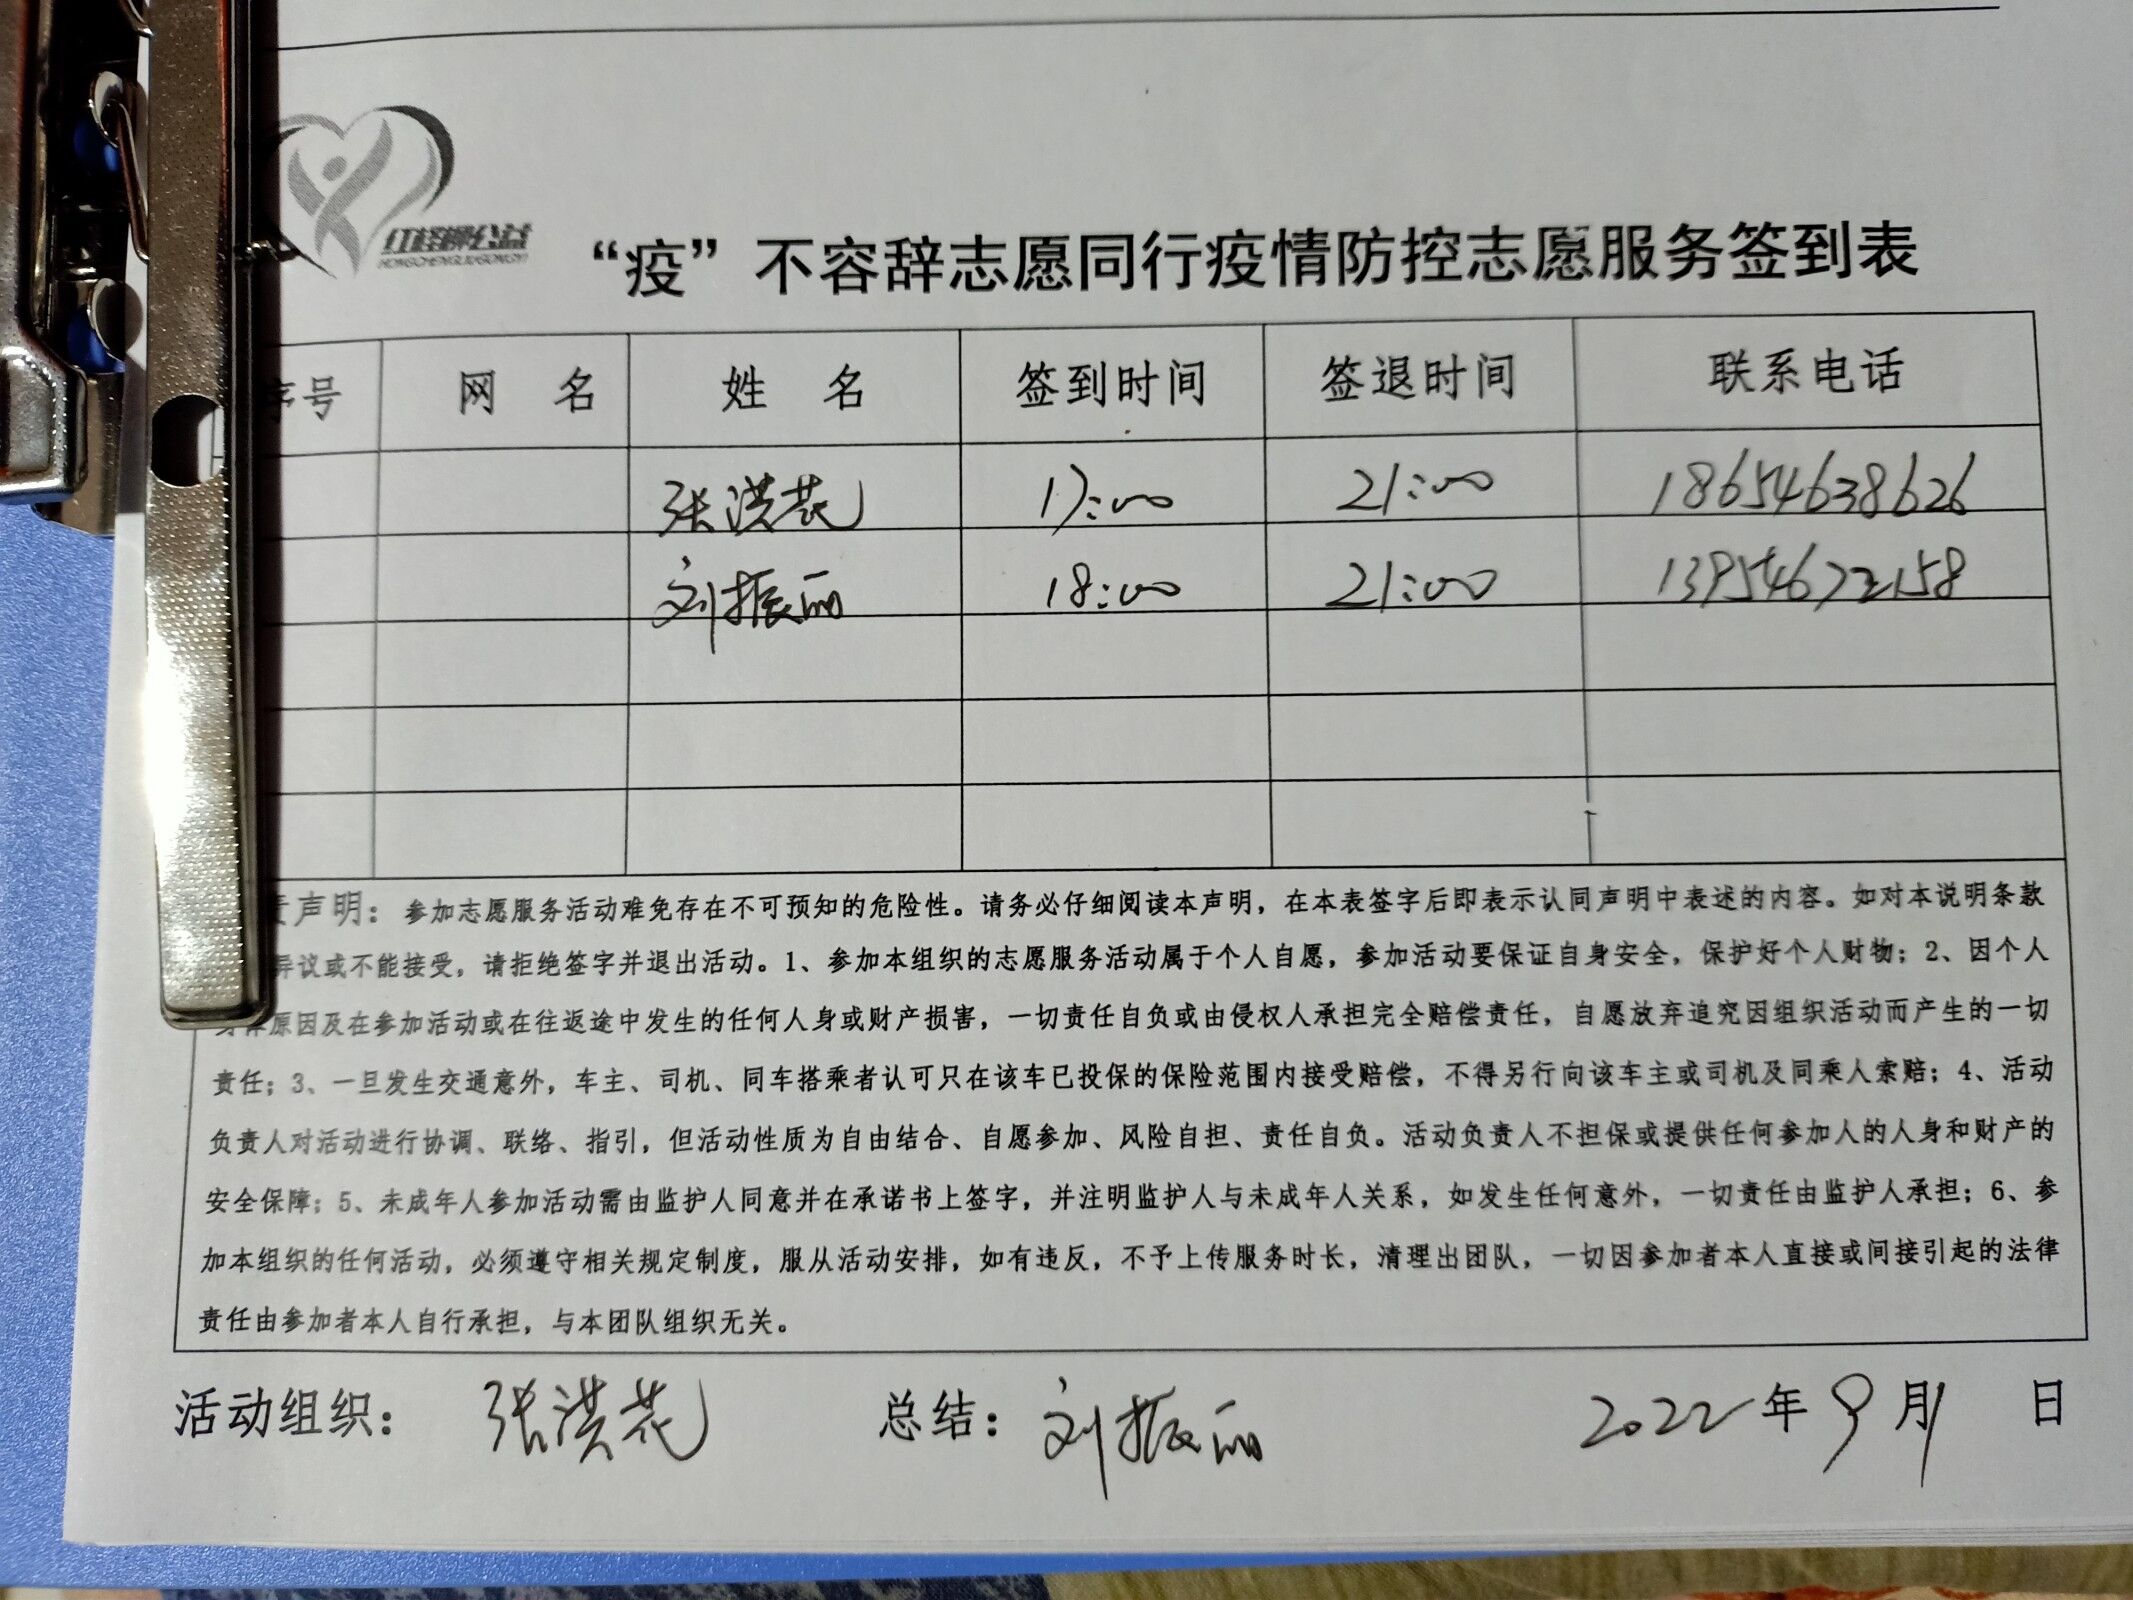 红柽柳公益
HONGCHENGLIUGONGYI
“疫”不容辞志愿同行疫情防控志愿服务签到表
序号 网 名 姓 名 签到时间 签退时间 联系电话
张洪花 17:00 21:00 18654638626
刘振丽 18:00 21:00 13954672158
责声明：参加志愿服务活动难免存在不可预知的危险性。请务必仔细阅读本声明，在本表签字后即表示认同声明中表述的内容。如对本说明条款
异议或不能接受，请拒绝签字并退出活动。1、参加本组织的志愿服务活动属于个人自愿，参加活动要保证自身安全，保护好个人财物；2、因个人
身体原因及在参加活动或在往返途中发生的任何人身或财产损害，一切责任自负或由侵权人承担完全赔偿责任，自愿放弃追究因组织活动而产生的一切
责任；3、一旦发生交通意外，车主、司机、同车搭乘者认可只在该车已投保的保险范围内接受赔偿，不得另行向该车主或司机及同乘人索赔；4、活动
负责人对活动进行协调、联络、指引，但活动性质为自由结合、自愿参加、风险自担、责任自负。活动负责人不担保或提供任何参加人的人身和财产的
安全保障；5、未成年人参加活动需由监护人同意并在承诺书上签字，并注明监护人与未成年人关系，如发生任何意外，一切责任由监护人承担；6、参
加本组织的任何活动，必须遵守相关规定制度，服从活动安排，如有违反，不予上传服务时长，清理出团队，一切因参加者本人直接或间接引起的法律
责任由参加者本人自行承担，与本团队组织无关。
活动组织： 张洪花 总结： 刘振丽 2022年9月1日